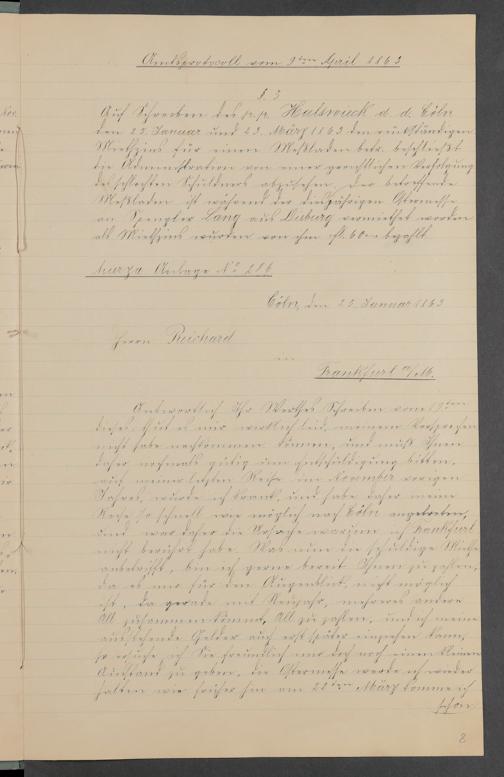 Amtsprotocoll vom 9ten April 1863
§. 3
Auf Schreiben des p. p. Hulswuck d. d. Cöln
den 25. Januar und 23. März 1863 den rückständigen
Miethzins für einen Meßladen betr. beschließt
die Administration von einer gerichtlichen Verfolgung
des schlechten Schuldners abzusehen. Der betreffende
Meßladen ist während der diesjährigen Ostermesse
an Spengler Lang aus Diburg vermiethet worden
als Miethzins wurden von ihm fl. 60 bezahlt
hierzu Anlage No 286
Cöln, den 25. Januar 1863
Herrn Reichard
in
Frankfurt a/M.
Antwortlich Ihr Werthes Schreiben vom 19ten
dieses, thut es mir wirklich leid, meinem Versprechen
nicht habe nachkommen können, und muß Ihnen
daher nochmals gütig um Entschuldigung bitten,
auf meiner letzten Reise im November vorigen
Jahres, wurde ich krank, und habe daher meine
Reise so schnell wie möglich nach Cöln angetreten,
und war daher die Ursache warum ich Frankfurt
nicht berührt habe. Was nun die schuldige Miethe
anbetrifft, bin ich gerne bereit Ihnen zu zahlen,
da es mir für den Augenblick nicht möglich
ist, da gerade mit Neujahr, mehreres andere
All zusammen kömmt, All zu zahlen, und ich meine
ausstehende Gelder auch erst später einziehen kann,
so ersuche ich Sie freundlich mir doch noch einen kleinen
Ausstand zu geben, die Ostermesse werde ich wieder
halten wie früher hin am 22ten März komme ich
schon
8